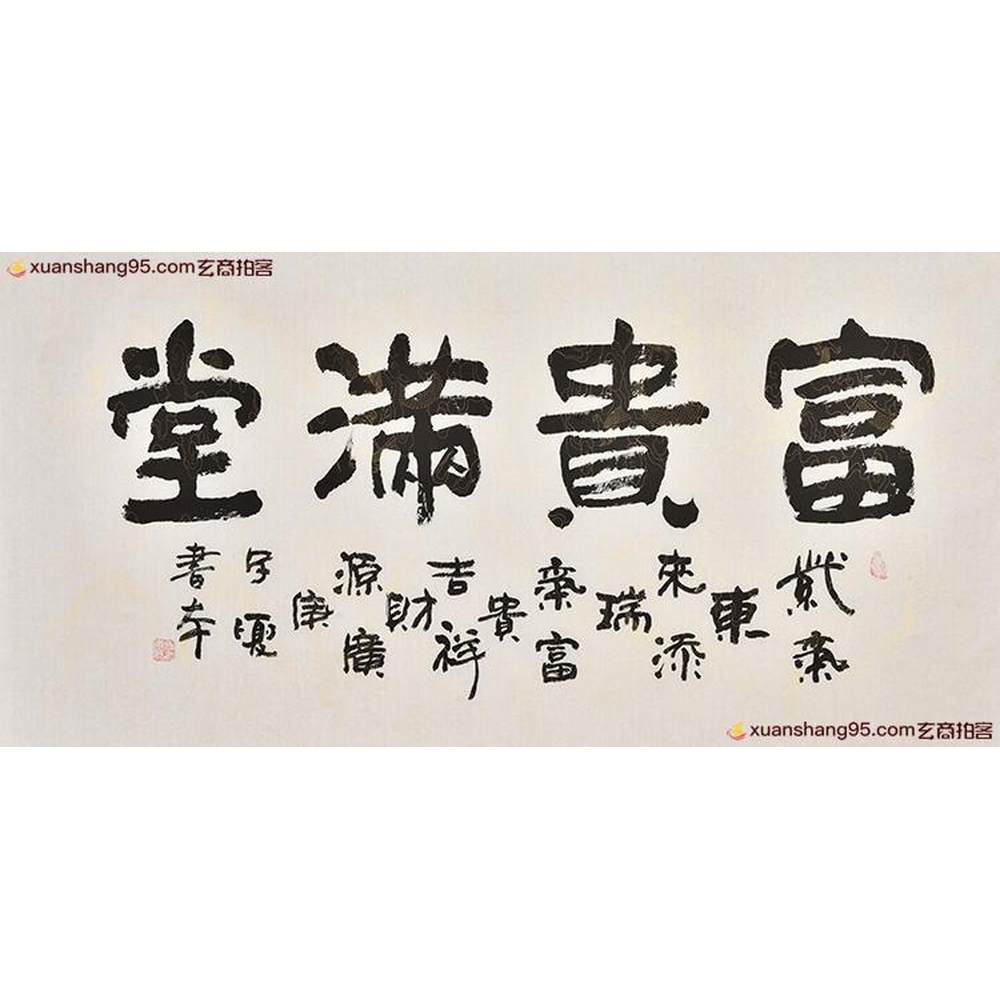 xuanshang95.com玄商拍客
富貴滿堂
紫氣
東
來添
瑞
氣富
貴
吉祥
財
源廣
庚
子夏
書年
xuanshang95.com玄商拍客